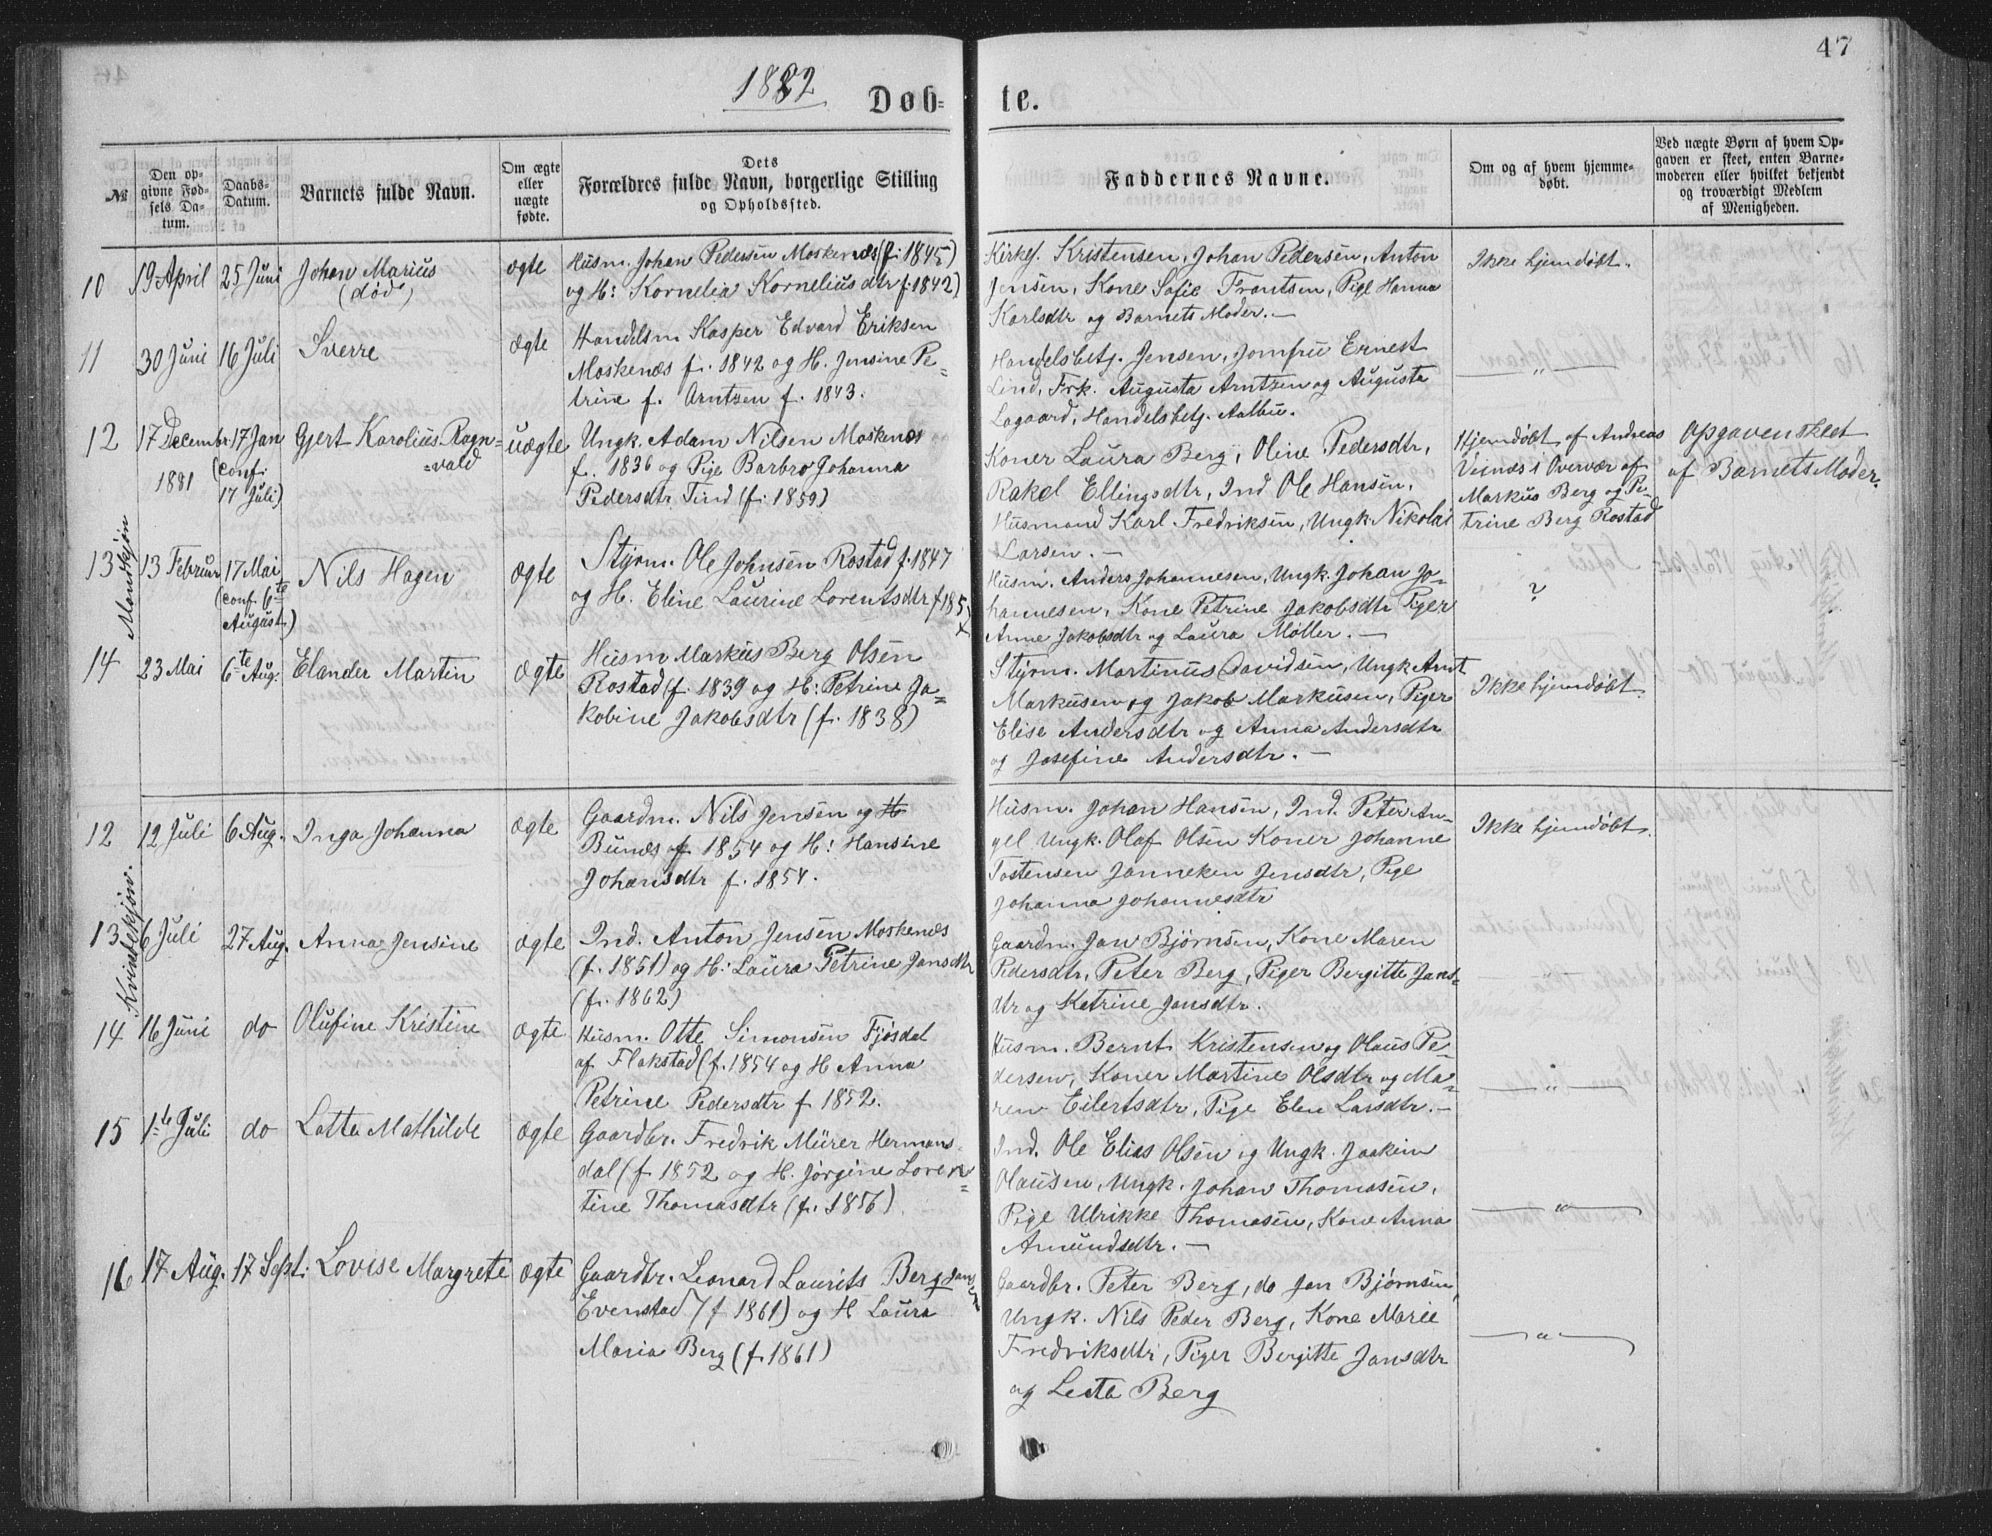 47
1882
Døb-
te.
№
Den op-
givne Fød-
sels Da-
tum.
Daabs-
Datum.
Barnets fulde Navn.
Om ægte
eller
uægte
fødte.
Dets
Forældres fulde Navn, borgerlige Stilling
og Opholdssted.
Faddernes Navne.
Om og af hvem hjemme-
døbt.
Ved uægte Børn af hvem Op-
gaven er skeet, enten Barne-
moderen eller hvilket bekjendt
og troværdigt Medlem
af Menigheden.
Mandkjøn
10
19 April
25 Juni
Johan Marius
(død)
ægte
Husm. Johan Pedersen Moskenæs (f. 1845)
og H: Kornelia Kornelius dtr f. 1842)
Kirkes. Kristensen, Johan Pedersen, Anton
Jensen, Kone Sofie Frantsen, Pige Hanna
Karlsdtr og Barnets Moder. —
Ikke hjemdøbt.
11
30 Juni
16 Juli
Sverre
ægte
Handelsm Kasper Edvard Eriksen
Moskenæs f. 1842 og H. Jensine Pe-
trine f. Arntzen f. 1843.
Handelsbetj. Jensen, Jomfru Ernest
Lind, Frk. Augusta Arntzen og Augusta
Lagaard, Handelsbetj. Aalbu.
— " —
12
17 Decembr
1881
17 Jan
(conf.
17 Juli)
Gjert Karolius Ragn-
=vald
uægte
Ungk. Adam Nilsen Moskenæs
f. 1836 og Pige Barbro Johanna
Pedersdtr. Tind (f. 1859)
Koner Laura Berg, Oline Pedersdtr,
Rakel Ellingsdtr, Ind Ole Hansen,
Husmand Karl Fredriksen, Ungk. Nikolai
Larsen. —
Hjemdøbt af Andreas
Veinæs i Overvær af
Markus Berg og Pe-
trine Berg Rostad
Opgaven skeet
af Barnets Moder.
13
13 Februar
17 Mai
(conf. 6te
August)
Nils Hagen
ægte
Styrm. Ole Johnsen Rostad f. 1847
og H. Eline Laurine Lorentsdtr f 185
Husm. Anders Johannesen, Ungk. Johan Jo-
hannesen, Kone Petrine Jakobsdtr Piger
Anne Jakobsdtr og Laura Møller. —
?
14
23 Mai
6te Aug.
Elander Martin
ægte
Husm Markus Berg Olsen
Rostad (f. 1839 og H: Petrine Ja-
kobine Jakobsdtr (f. 1838)
Styrm. Martinus Davidsen, Ungk Arnt
Markusen og Jakob Markusen, Piger
Elise Andersdtr og Anna Andersdtr
og Josefine Andersdtr. —
Ikke hjemdøbt.
Kvindekjøn.
12
12 Juli
6 Aug.
Inga Johanna
ægte
Gaardm. Nils Jensen og H
Bunes f. 1854 og H: Hansine
Johansdtr f. 1854.
Husm. Johan Hansen, Ind. Peter An-
gel Ungk. Olaf Olsen Koner Johanne
Tostensen Janneken Jensdtr, Pige
Johanna Johannesdtr
Ikke hjemdøbt.
13
6 Juli
27 Aug.
Anna Jensine
ægte
Ind. Anton Jensen Moskenæs
(f. 1851) og H: Laura Petrine Jansdtr
(f. 1862)
Gaardm. Jan Bjørnsen, Kone Maren
Pedersdtr, Peter Berg, Piger Bergitte Jans-
dtr og Katrine Jansdtr.
14
16 Juni
do
Olufine Kristine
ægte
Husm. Otte Simonsen Fjøsdal
af Flakstad (f. 1854 og H Anna
Petrine Pedersdtr f 1852.
Husm. Bernt Kristensen og Olaus Pe-
dersen, Koner Martine Olsdtr og Ma-
ren Eilertsdtr, Pige Elen Larsdtr. —
— " —
15
1te Juli
do
Lotta Mathilde
ægte
Gaardbr. Fredrik Mürer Hermans-
dal (f. 1852 og H. Jørgine Loren-
tine Thomasdtr (f. 1856)
Ind. Ole Elias Olsen og Ungk. Joakim
Olausen, Ungk. Johan Thomasen,
Pige Ulrikke Thomasen, Kone Anna
Amundsdtr. —
— " —
16
17 Aug.
17 Sept.
Lovise Margrete
ægte
Gaardbr. Leonard Laurits Berg Jansen
Evenstad (f. 1861) og H Laura
Maria Berg (f. 1861)
Gaardbr. Peter Berg, do Jan Bjørnsen,
Ungk. Nils Peder Berg, Kone Marie
Fredriksdtr, Piger Bergitte Jansdtr
og Berg
— " —